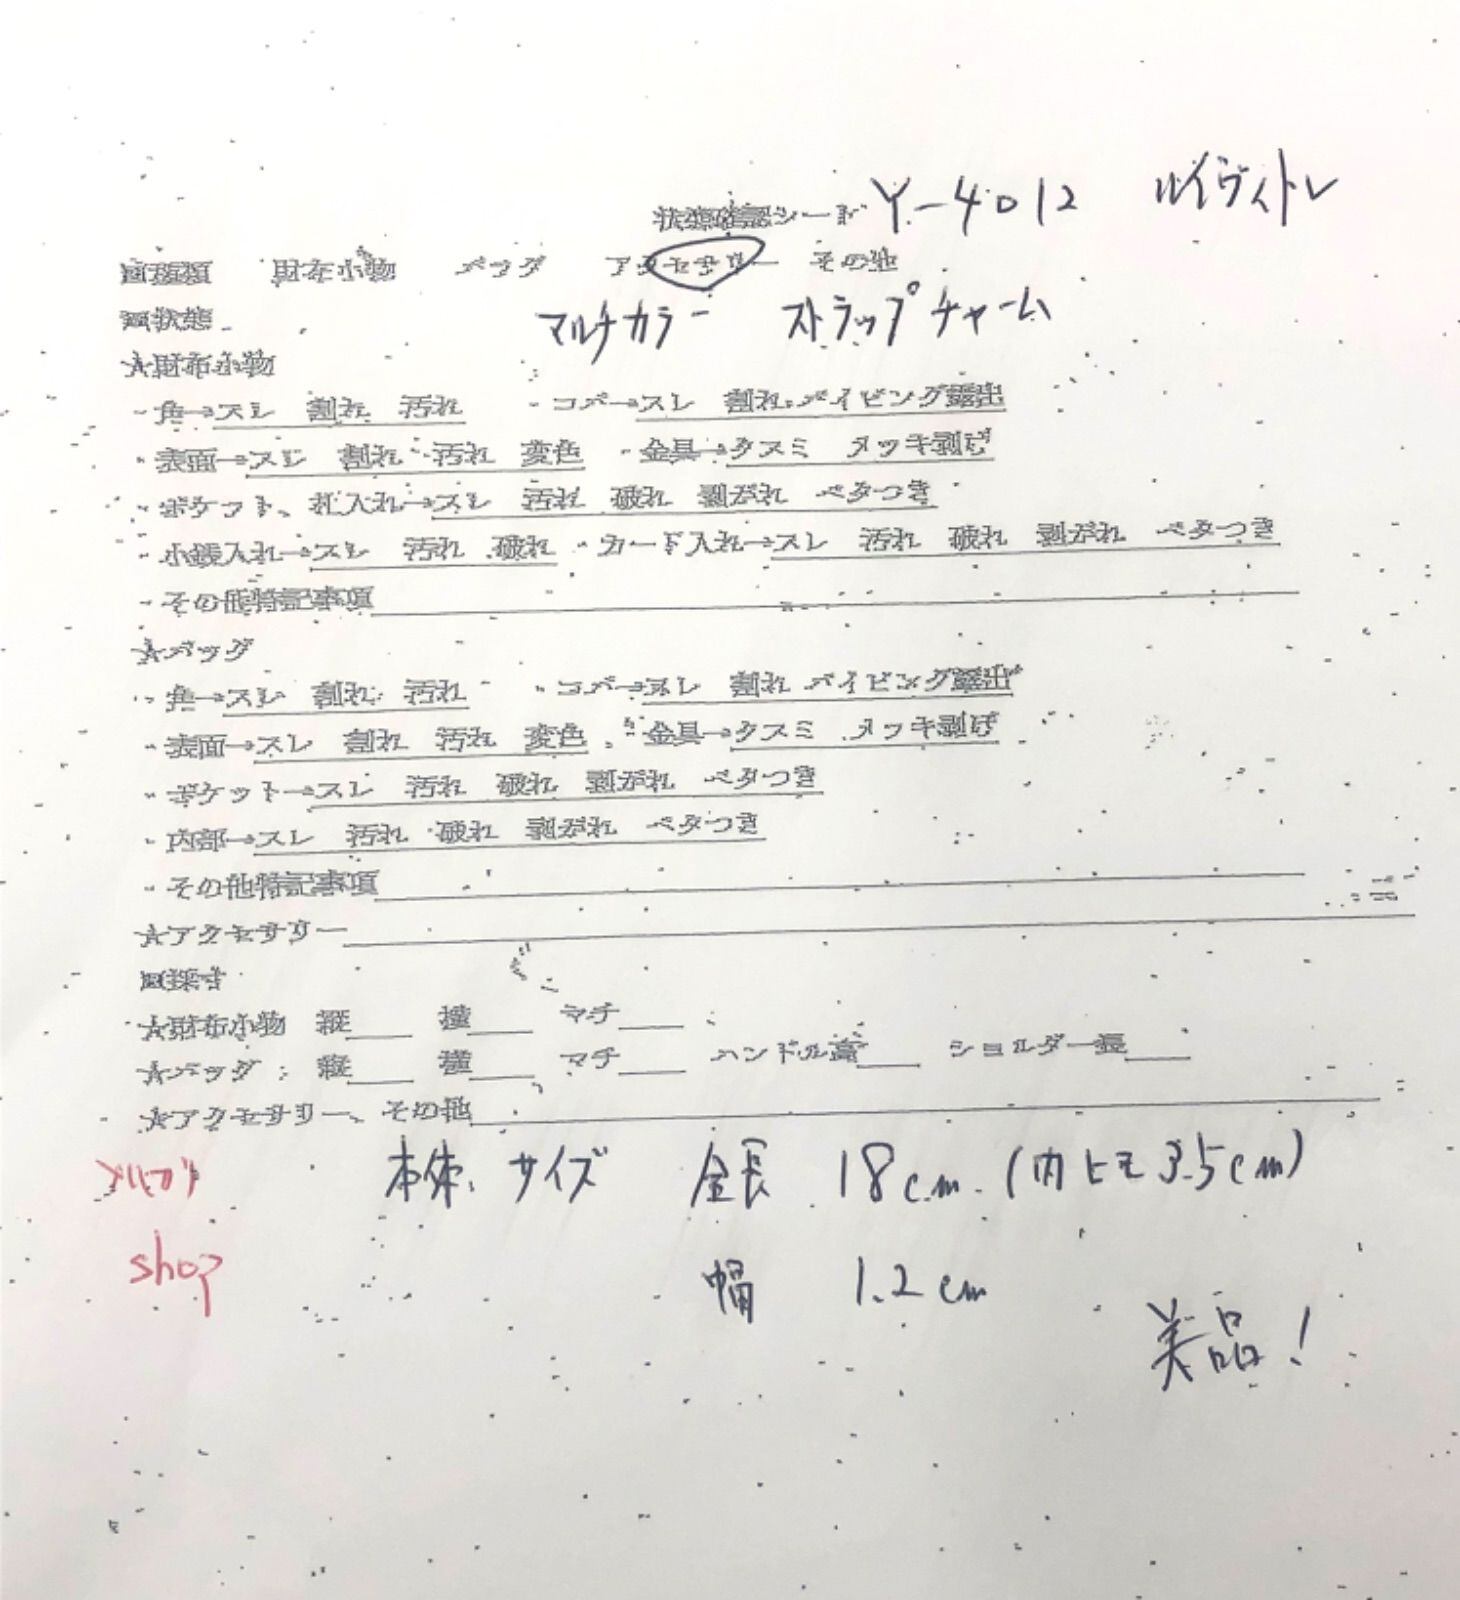 状態確認シート Y-4012 ルイヴィトン
回種類 財布小物 バッグ アクセサリー その他
回状態 マルチカラー ストラップチャーム
★財布小物
・角→スレ 割れ 汚れ ・コバ→スレ 割れ パイピング露出
・表面→スレ 割れ 汚れ 変色 ・金具→クスミ メッキ剥げ
・ポケット、札入れ→スレ 汚れ 破れ 剥がれ ベタつき
・小銭入れ→スレ 汚れ 破れ ・カード入れ→スレ 汚れ 破れ 剥がれ ベタつき
・その他特記事項
★バッグ
・角→スレ 割れ 汚れ ・コバ→スレ 割れ パイピング露出
・表面→スレ 割れ 汚れ 変色 ・金具→クスミ メッキ剥げ
・ポケット→スレ 汚れ 破れ 剥がれ ベタつき
・内部→スレ 汚れ 破れ 剥がれ ベタつき
・その他特記事項
★アクセサリー
回採寸
★財布小物 縦 横 マチ
★バッグ 縦 横 マチ ハンドル高 ショルダー長
★アクセサリー、その他
本体サイズ 全長 18cm (内ヒモ3.5cm)
shop 幅 1.2cm
美品!